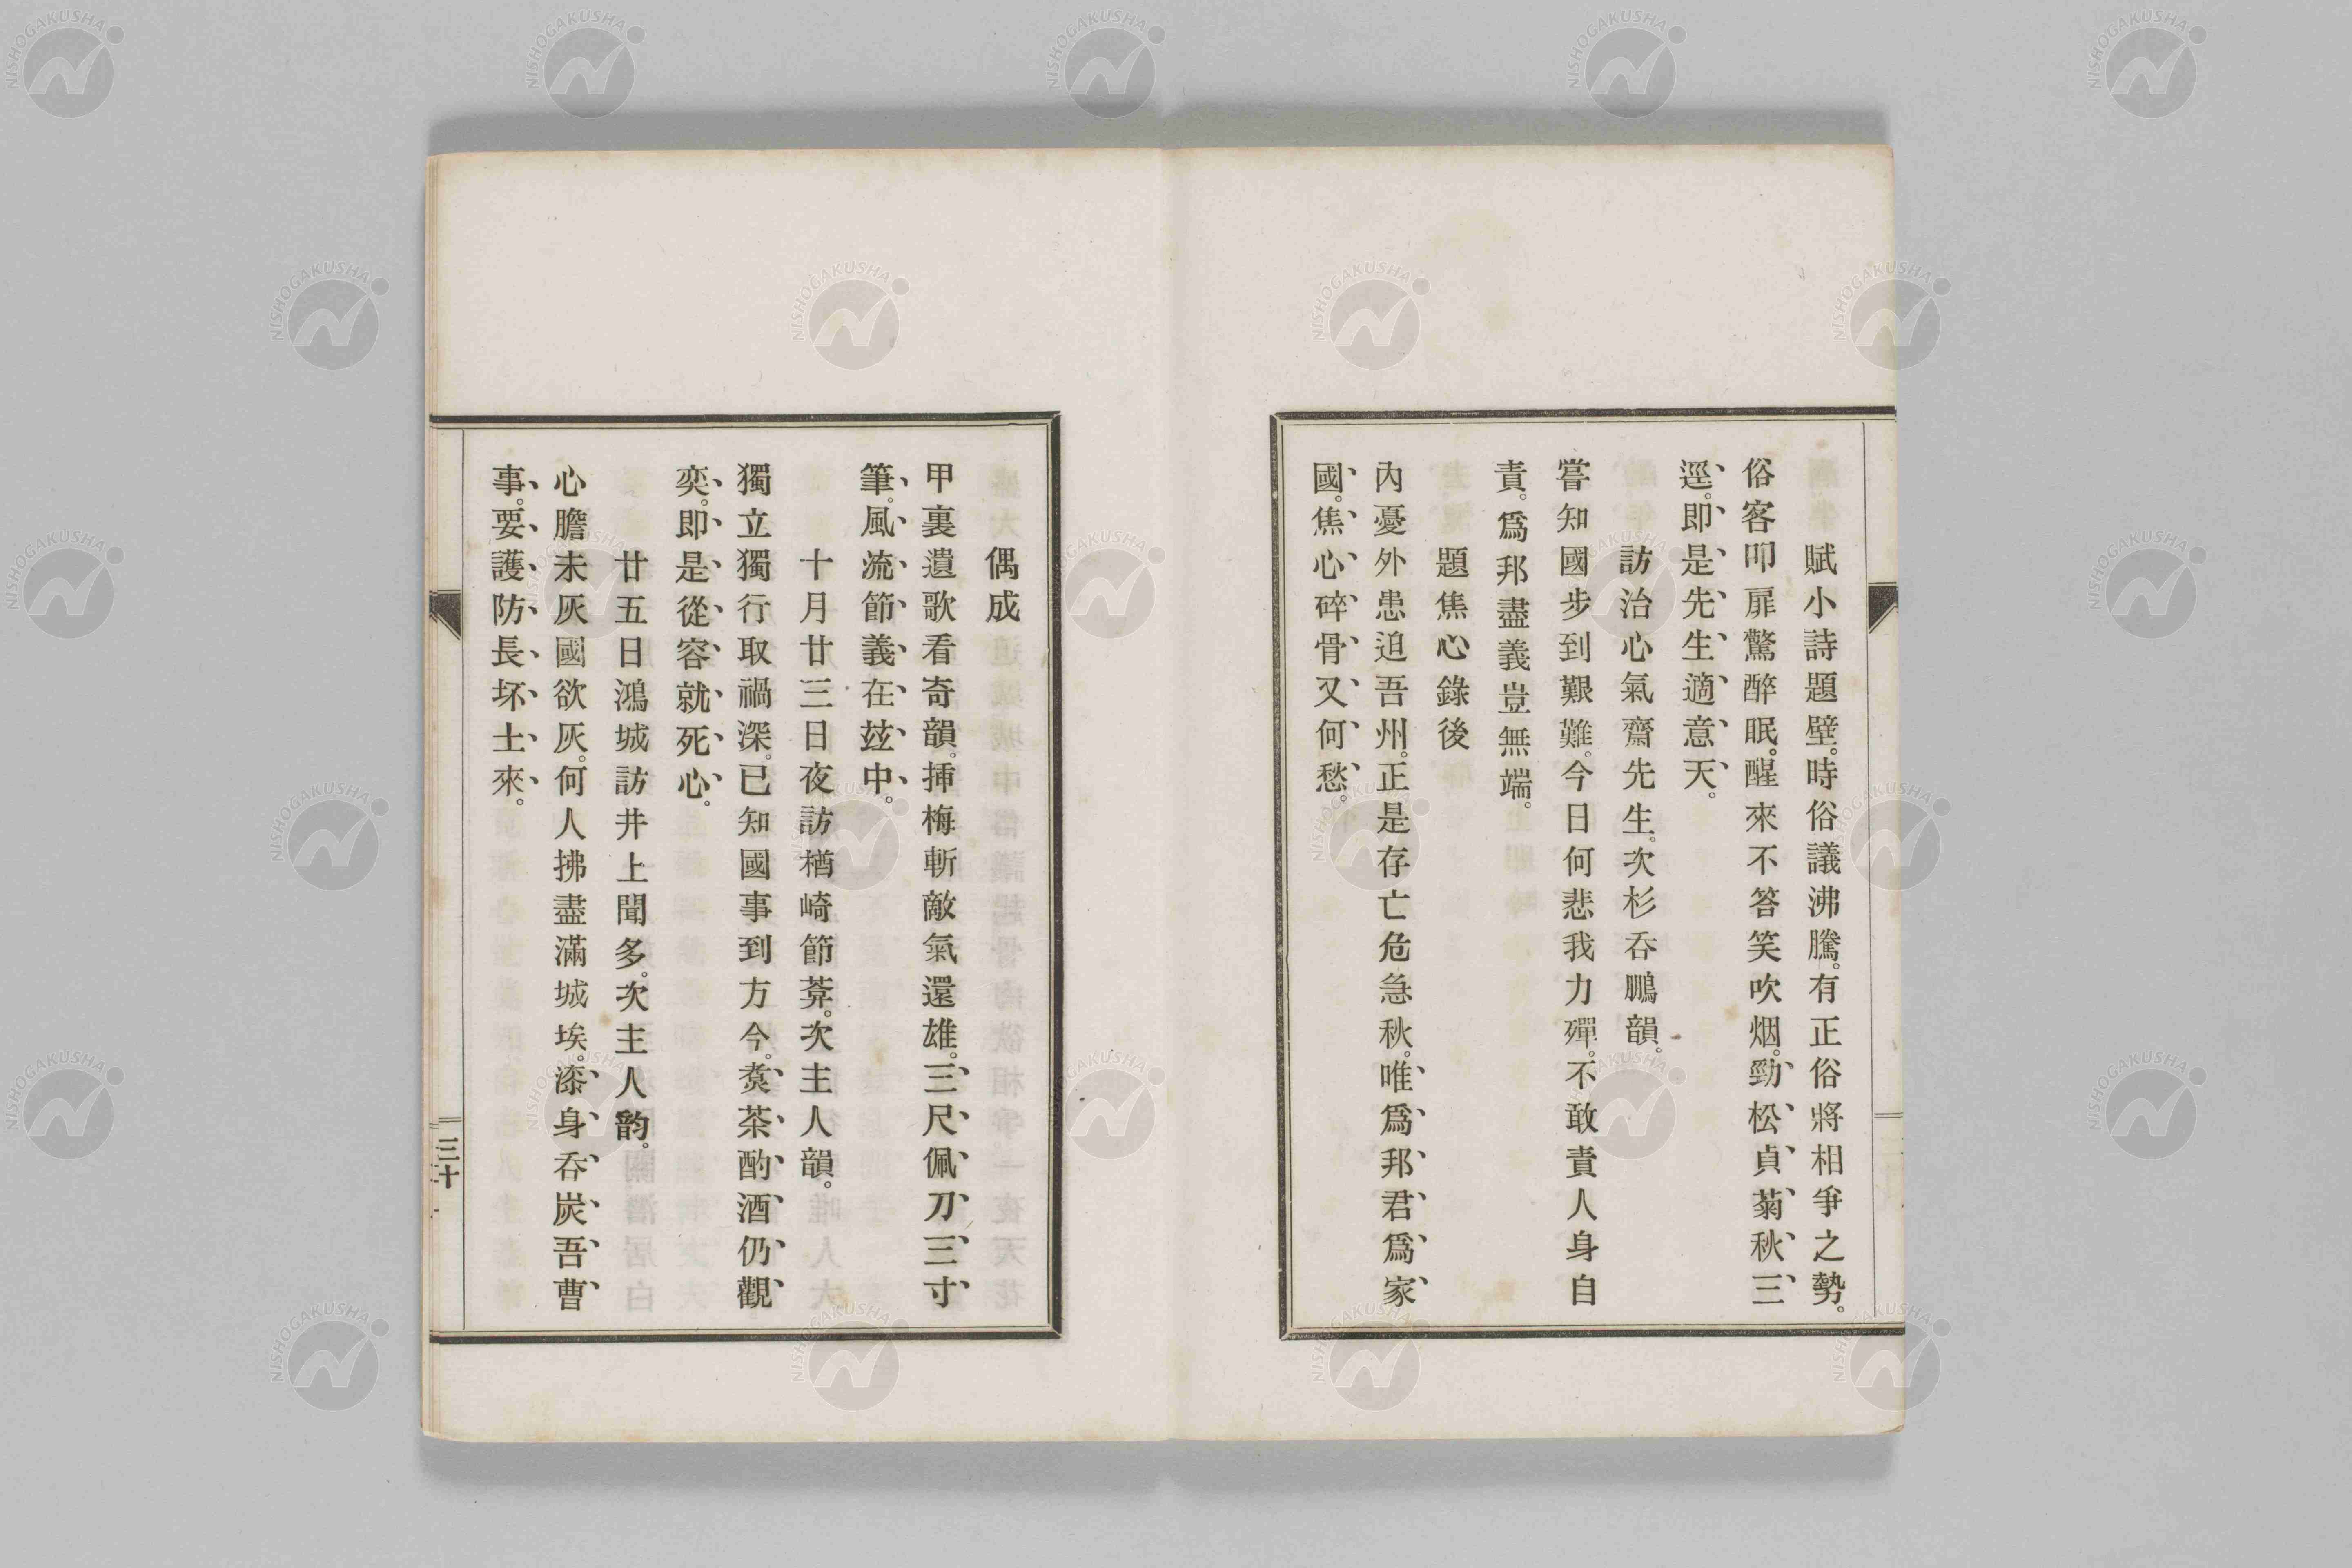 賦小詩題壁。時俗議沸騰。有正俗將相爭之勢。
俗客叩扉驚醉眠。醒來不答笑吹烟。勁松貞菊秋三
逕。即是先生適意天。
訪治心氣齋先生。次杉吞鵬韻。
嘗知國步到艱難。今日何悲我力殫。不敢責人身自
責。爲邦盡義豈無端。
題焦心錄後
內憂外患迫吾州。正是存亡危急秋。唯爲邦君爲家
國。焦心碎骨又何愁。
偶成
甲裏遺歌看奇韻。挿梅斬敵氣還雄。三尺佩刀三寸
筆。風流節義在玆中。
十月廿三日夜訪楢崎節葊。次主人韻。
獨立獨行取禍深。已知國事到方今。煑茶酌酒仍觀
奕。即是從容就死心。
廿五日鴻城訪井上聞多。次主人韵。
心膽未灰國欲灰。何人拂盡滿城埃。漆身吞炭吾曹
事。要護防長坏土來。
三十
NISHOGAKUSHA